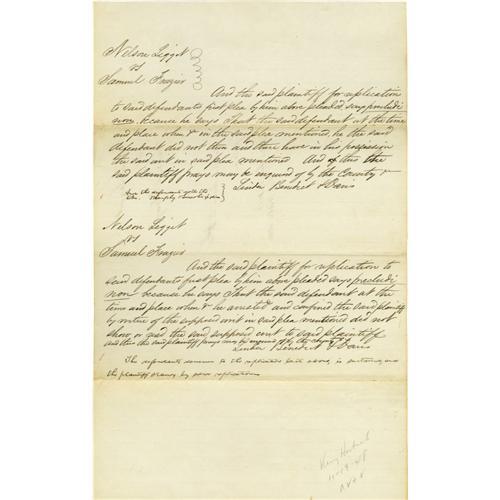 Nelson Legget
vs
Samuel Frazier
And the said plaintiff for replication
to said defendants first plea by him above pleaded says precludi
non, because he says that the said defendant at the time
and place when & in the said plea mentioned, he the said
defendant did not then and there have in his possession
the said writ in said plea mentioned And of this the
said plaintiff prays may be inquired of by the Country &c
Linder Benedict & Davis
And the defendant doth the
Nelson Legget
vs
Samuel Frazier
And the said plaintiff for replication to
said defendants first plea by him above pleaded says precludi
non because he says that the said defendant at the
time and place when he arrested and confined the said plaintiff
by virtue of the supposed writ in said plea mentioned did not
show or read the said supposed writ to said plaintiff
and this the said plaintiff prays may be inquired of by the country &c
Linder Benedict & Davis
The defendants demurrer to the replication last above, is sustained, and
the plaintiff